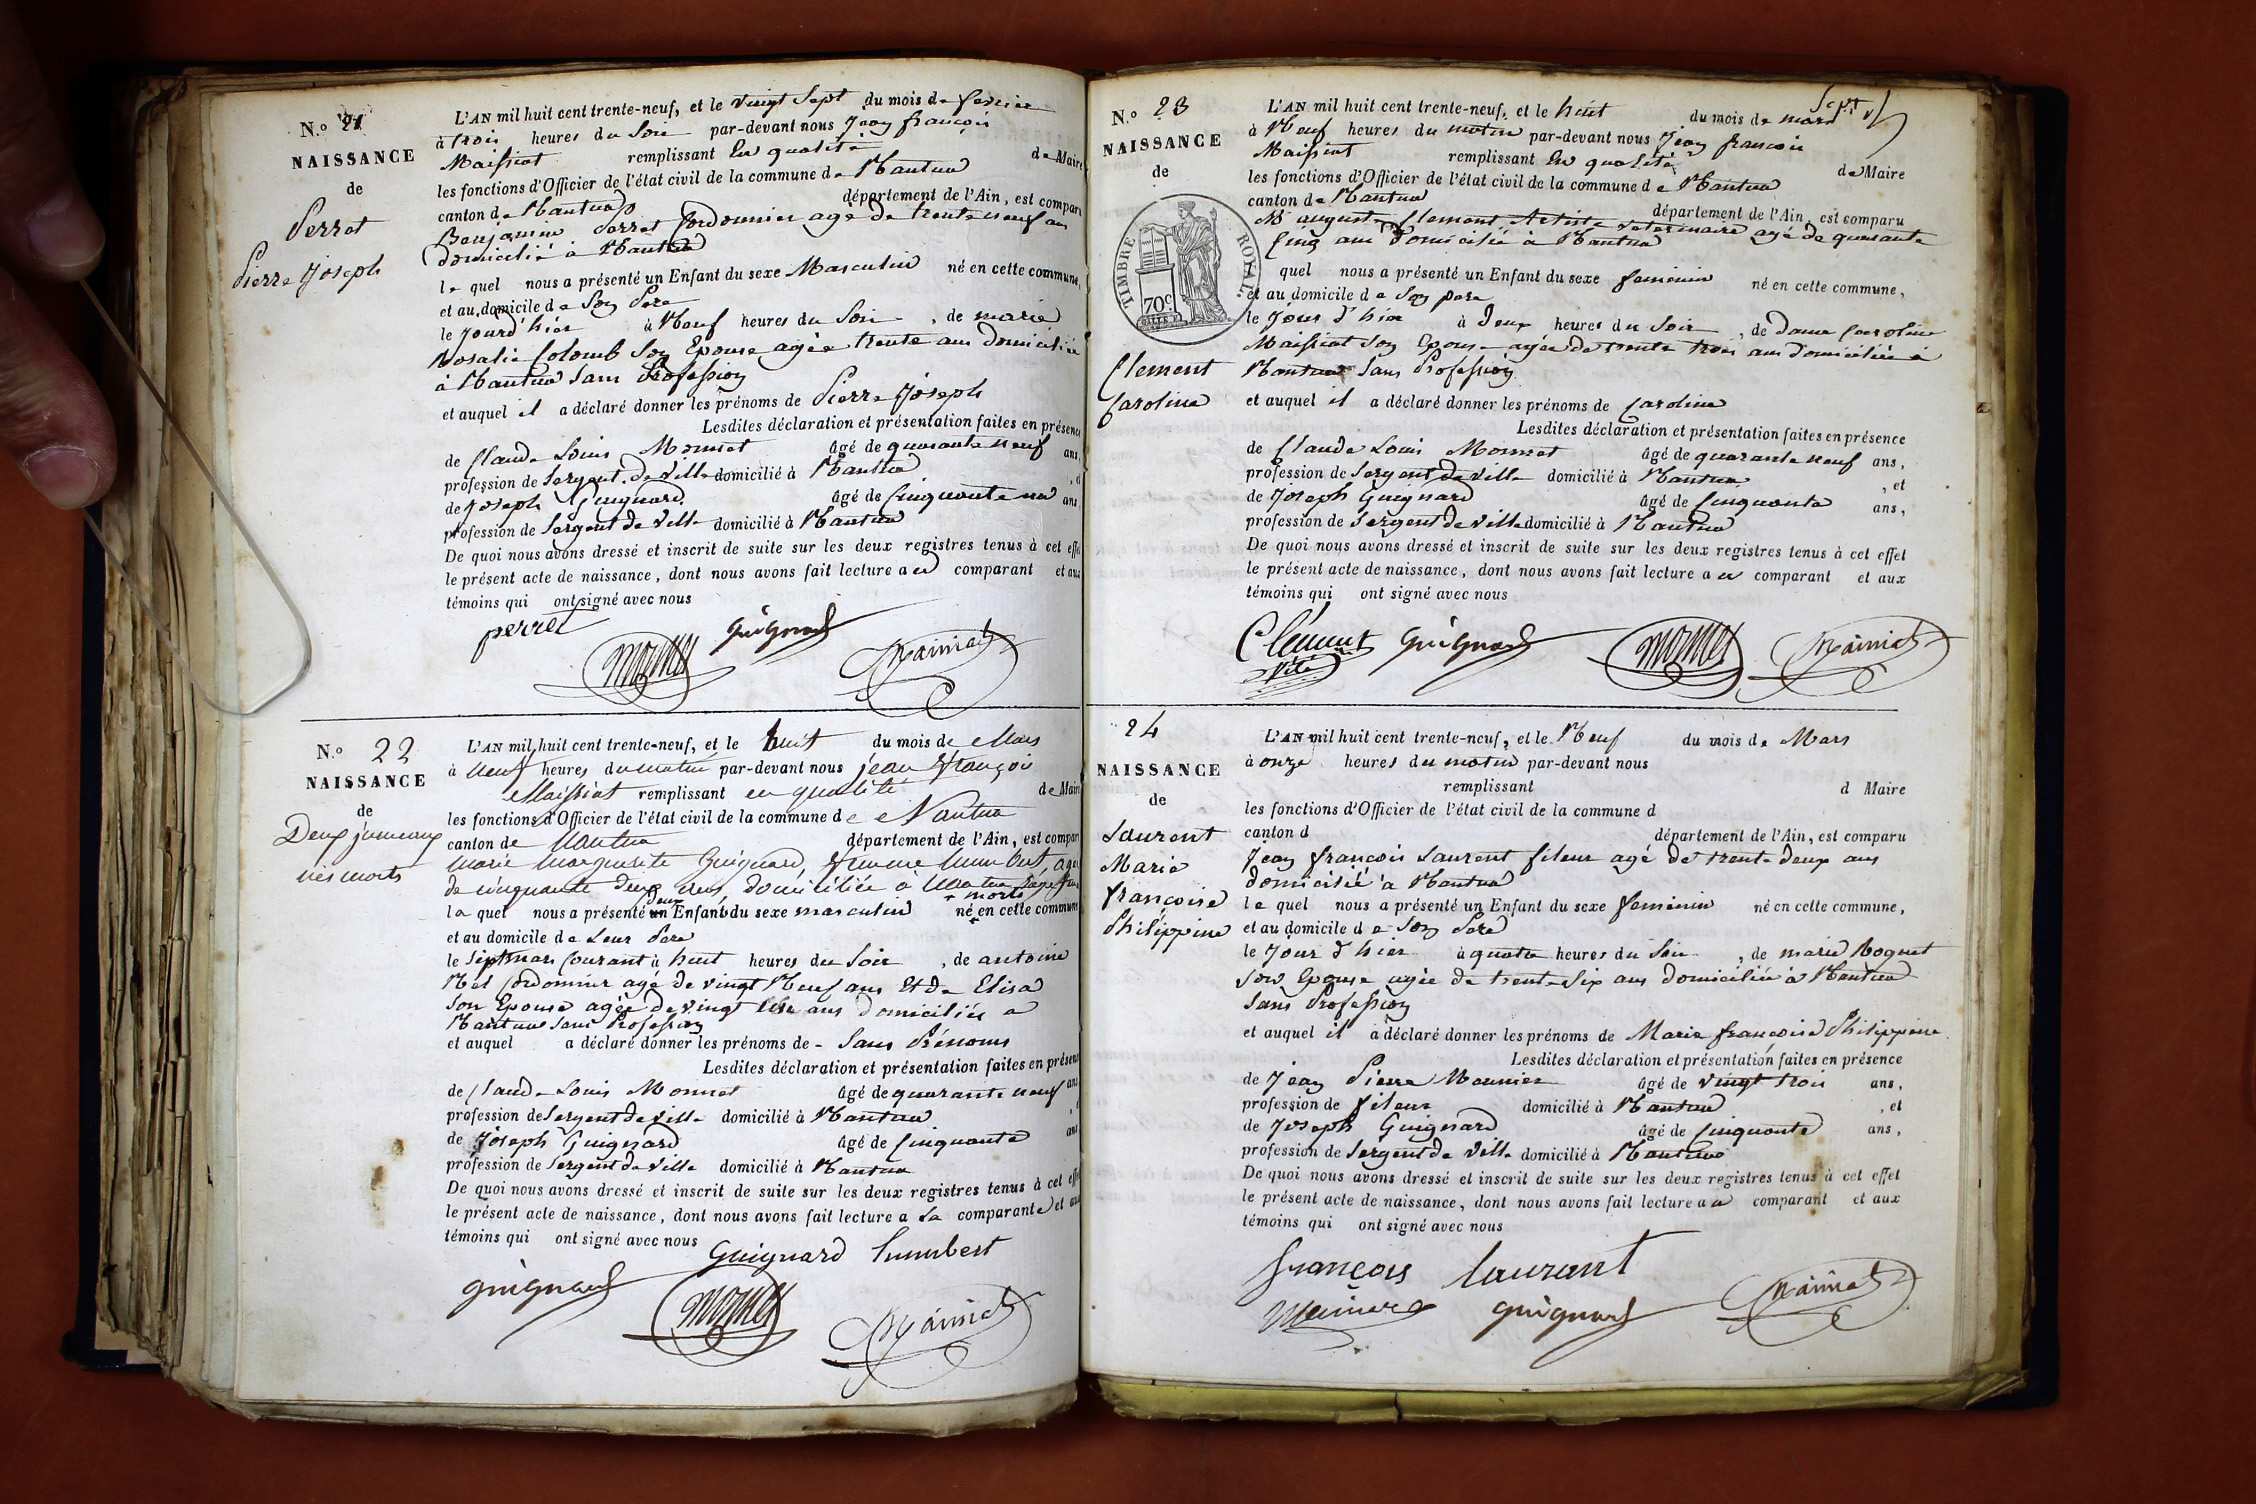 N.o 21
NAISSANCE
de
Perret
Pierre Joseph
L'AN mil huit cent trente-neuf, et le vingt Sept du mois de fevrier
à trois heures du Soir par-devant nous Jean françois
Maissiat remplissant En qualité de Maire
les fonctions d'Officier de l'état civil de la commune de Nantua
canton de Nantua département de l'Ain, est comparu
Benjamin Perret Cordonnier agé de trente neuf ans
domicilié à Nantua
le quel nous a présenté un Enfant du sexe Masculin né en cette commune,
et au domicile de Son Pere
le Jourd'hier à Neuf heures du Soir, de marie
Rosalie Colomb Son Epouse agée trente ans domiciliée
à Nantua Sans Profession
et auquel il a déclaré donner les prénoms de Pierre Joseph
Lesdites déclaration et présentation faites en présence
de Claude Louis Monnet âgé de quarante neuf ans,
profession de Sergent de Ville domicilié à Nantua
de Joseph Guignard âgé de Cinquante un ans,
profession de Sergent de Ville domicilié à Nantua
De quoi nous avons dressé et inscrit de suite sur les deux registres tenus à cet effet
le présent acte de naissance, dont nous avons fait lecture au comparant et aux
témoins qui ont signé avec nous
perret
Guignard
Monnet
Maissiat
N.o 22
NAISSANCE
de
Deux jumeaux
nés morts
L'AN mil huit cent trente-neuf, et le huit du mois de Mars
à neuf heures du matin par-devant nous jean françois
Maissiat remplissant en qualité de Maire
les fonctions d'Officier de l'état civil de la commune de Nantua
canton de Nantua département de l'Ain, est comparu
marie marguerite Guignard, femme humbert, agée
de cinquante deux ans, domiciliée à Nantua
deux + morts
la quel nous a présenté un Enfants du sexe masculin né en cette commune
et au domicile de Leur Pere
le Sept mars Courant à huit heures du Soir, de antoine
Cordonnier agé de vingt Neuf ans Et de Elisa
Son Epouse agée de vingt ans domiciliés a
Nantua Sans Profession
et auquel a déclaré donner les prénoms de - Sans Prénoms
Lesdites déclaration et présentation faites en présence
de Claude Louis Monnet âgé de quarante neuf ans
profession de Sergent de Ville domicilié à Nantua
de Joseph Guignard âgé de Cinquante ans
profession de Sergent de Ville domicilié à Nantua
De quoi nous avons dressé et inscrit de suite sur les deux registres tenus à cet effet
le présent acte de naissance, dont nous avons fait lecture a La comparante et aux
témoins qui ont signé avec nous
Guignard humbert
Guignard
Monnet
Maissiat
N.o 23
NAISSANCE
de
TIMBRE ROYAL.
70c
Clement
Caroline
Sept
L'AN mil huit cent trente-neuf, et le huit du mois de mars
à Neuf heures du matin par-devant nous Jean françois
Maissiat remplissant En qualité de Maire
les fonctions d'Officier de l'état civil de la commune de Nantua
canton de Nantua département de l'Ain, est comparu
Mr auguste Clement Artiste veterinaire agé de quarante
Cinq ans domicilié à Nantua
quel nous a présenté un Enfant du sexe feminin né en cette commune,
et au domicile de Son pere
le Jour d'hier à deux heures du Soir, de dame Caroline
Maissiat Son Epouse agée de trente trois ans domiciliée à
Nantua Sans Profession
et auquel il a déclaré donner les prénoms de Caroline
Lesdites déclaration et présentation faites en présence
de Claude Louis Monnet âgé de quarante neuf ans,
profession de Sergent de Ville domicilié à Nantua, et
de Joseph Guignard âgé de Cinquante ans,
profession de Sergent de Ville domicilié à Nantua
De quoi nous avons dressé et inscrit de suite sur les deux registres tenus à cet effet
le présent acte de naissance, dont nous avons fait lecture au comparant et aux
témoins qui ont signé avec nous
Clément Guignard Monnet Maissiat
Vété
24
NAISSANCE
de
Laurent
Marie
françoise
Philippine
L'AN mil huit cent trente-neuf, et le Neuf du mois de Mars
à onze heures du matin par-devant nous
remplissant d Maire
les fonctions d'Officier de l'état civil de la commune d
canton d département de l'Ain, est comparu
Jean françois Laurent fileur agé de trente deux ans
domicilié à Nantua
le quel nous a présenté un Enfant du sexe feminin né en cette commune,
et au domicile de Son Pere
le Jour d'hier à quatre heures du Soir, de marie Roguet
Son Epouse agée de trente Six ans domiciliée à Nantua
Sans Profession
et auquel il a déclaré donner les prénoms de Marie françoise Philippine
Lesdites déclaration et présentation faites en présence
de Jean Pierre Mounier âgé de vingt trois ans,
profession de fileur domicilié à Nantua, et
de Joseph Guignard âgé de Cinquante ans,
profession de Sergent de Ville domicilié à Nantua
De quoi nous avons dressé et inscrit de suite sur les deux registres tenus à cet effet
le présent acte de naissance, dont nous avons fait lecture au comparant et aux
témoins qui ont signé avec nous
françois laurant
Guignard Maissiat